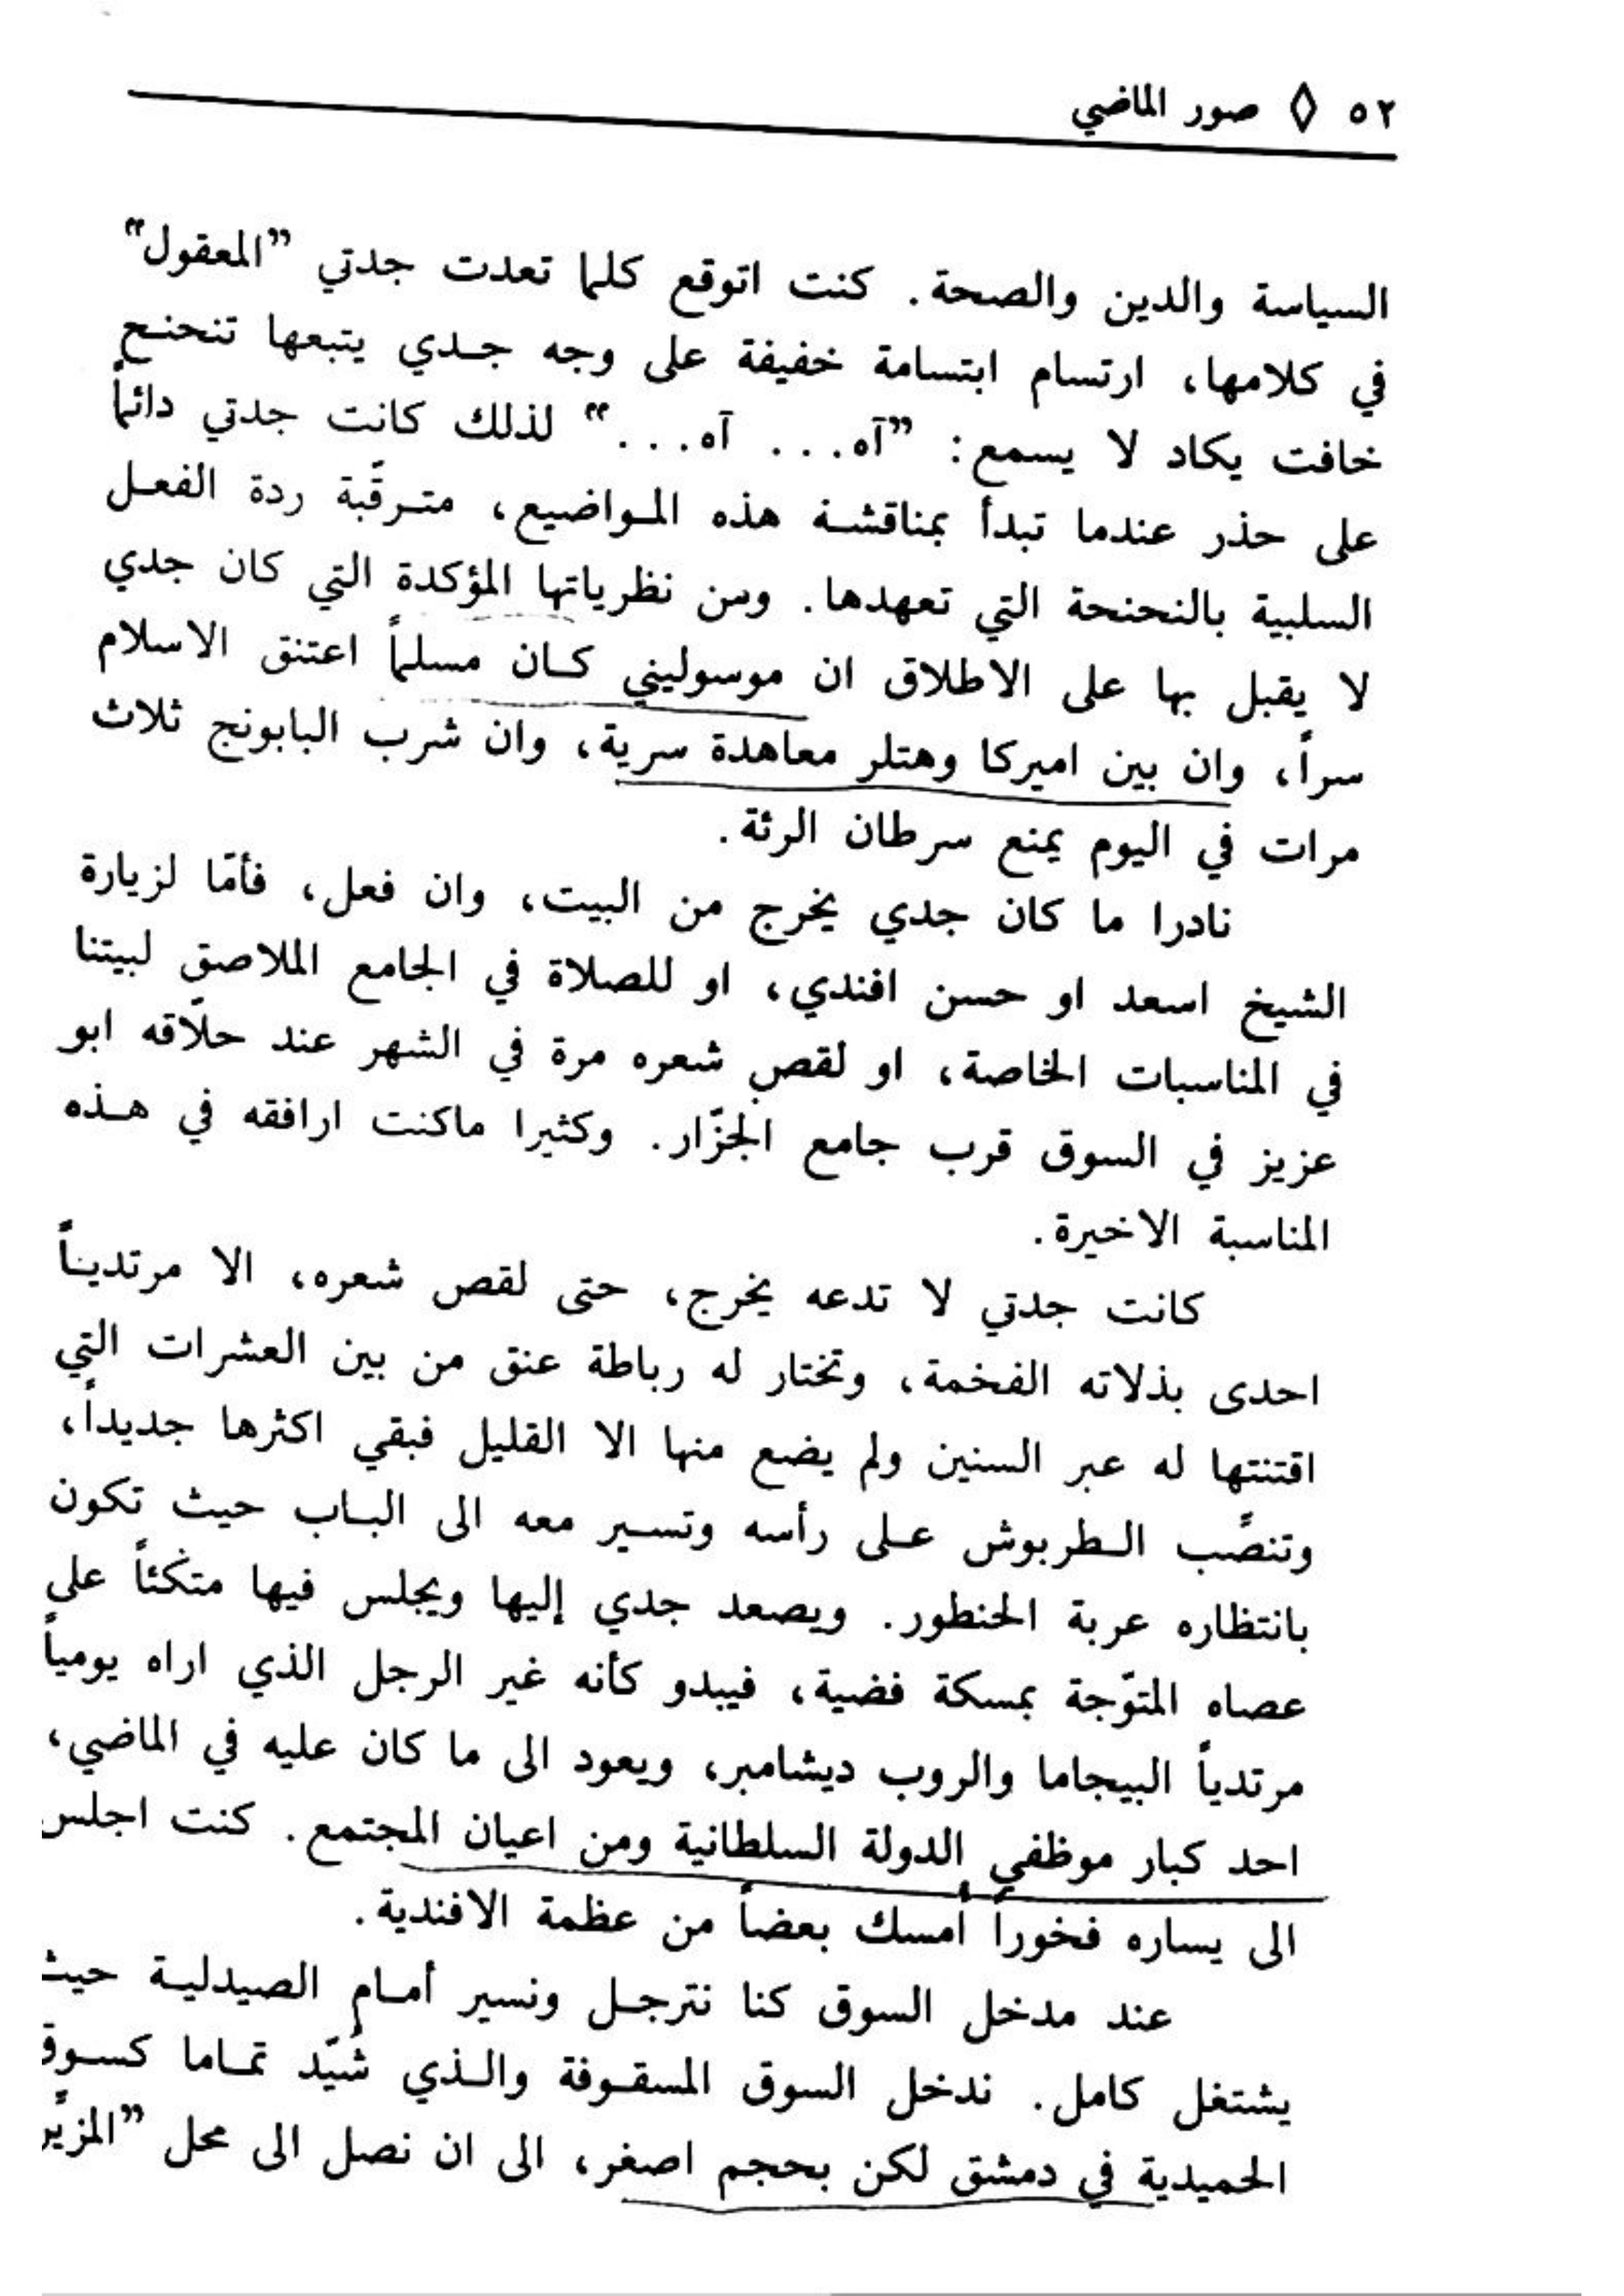 ٥٢ ◊ صور الماضي
السياسة والدين والصحة. كنت اتوقع كلما تعدت جدتي ”المعقول“
في كلامها، ارتسام ابتسامة خفيفة على وجه جدي يتبعها تنحنح
خافت يكاد لا يسمع: ”آه... آه...“ لذلك كانت جدتي دائماً
على حذر عندما تبدأ بمناقشة هذه المواضيع، مترقّبة ردة الفعل
السلبية بالنحنحة التي تعهدها. ومن نظرياتها المؤكدة التي كان جدي
لا يقبل بها على الاطلاق ان موسوليني كان مسلماً اعتنق الاسلام
سراً، وان بين اميركا وهتلر معاهدة سرية، وان شرب البابونج ثلاث
مرات في اليوم يمنع سرطان الرئة.
نادرا ما كان جدي يخرج من البيت، وان فعل، فأمّا لزيارة
الشيخ اسعد او حسن افندي، او للصلاة في الجامع الملاصق لبيتنا
في المناسبات الخاصة، او لقص شعره مرة في الشهر عند حلّاقه ابو
عزيز في السوق قرب جامع الجزّار. وكثيرا ماكنت ارافقه في هذه
المناسبة الاخيرة.
كانت جدتي لا تدعه يخرج، حتى لقص شعره، الا مرتديناً
احدى بذلاته الفخمة، وتختار له رباطة عنق من بين العشرات التي
اقتنتها له عبر السنين ولم يضع منها الا القليل فبقي اكثرها جديداً،
وتنصّب الطربوش على رأسه وتسير معه الى الباب حيث تكون
بانتظاره عربة الحنطور. ويصعد جدي إليها ويجلس فيها متكئاً على
عصاه المتوّجة بمسكة فضية، فيبدو كأنه غير الرجل الذي اراه يومياً
مرتدياً البيجاما والروب ديشامبر، ويعود الى ما كان عليه في الماضي،
احد كبار موظفي الدولة السلطانية ومن اعيان المجتمع. كنت اجلس
الى يساره فخوراً أمسك بعضاً من عظمة الافندية.
عند مدخل السوق كنا نترجل ونسير أمام الصيدلية حيث
يشتغل كامل. ندخل السوق المسقوفة والذي شُيّد تماما كسوق
الحميدية في دمشق لكن بحجم اصغر، الى ان نصل الى محل ”المزيّن